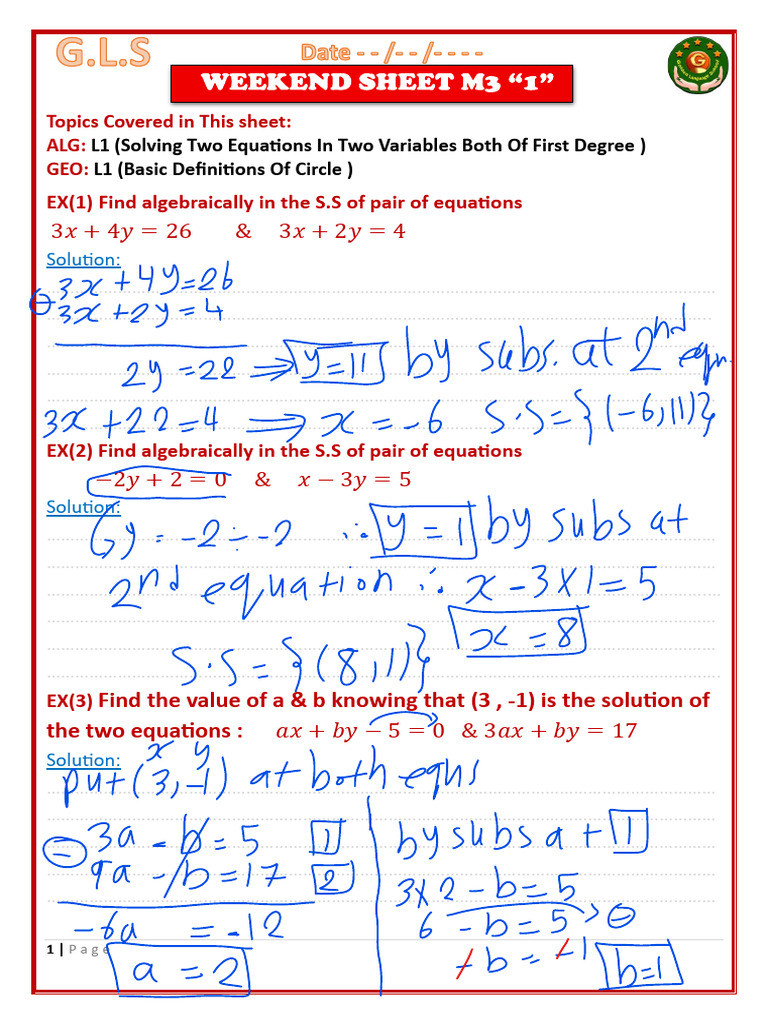 G.L.S
Date - - /- - /- - - -
WEEKEND SHEET M3 “1”
Topics Covered in This sheet:
ALG: L1 (Solving Two Equations In Two Variables Both Of First Degree )
GEO: L1 (Basic Definitions Of Circle )
EX(1) Find algebraically in the S.S of pair of equations
3x + 4y = 26 & 3x + 2y = 4
Solution:
3x + 4y = 26
⊖ 3x + 2y = 4
2y = 22 ⇒ y = 11 by subs. at 2nd eqn.
3x + 22 = 4 ⇒ x = -6 S.S = {(-6,11)}
EX(2) Find algebraically in the S.S of pair of equations
−2y + 2 = 0 & x − 3y = 5
Solution:
y = -2 ÷ -2 ∴ y = 1 by subs at
2nd equation ∴ x - 3 x 1 = 5
x = 8
S.S = {(8,1)}
EX(3) Find the value of a & b knowing that (3 , -1) is the solution of
the two equations : ax + by − 5 = 0 & 3ax + by = 17
Solution:
x y
put (3,-1) at both eqns
⊖ 3a - b = 5 1
9a - b = 17 2
-6a = -12
a = 2
by subs at 1
3 x 2 - b = 5
6 - b = 5 ⊖
-b = -1 b = 1
1 | Page